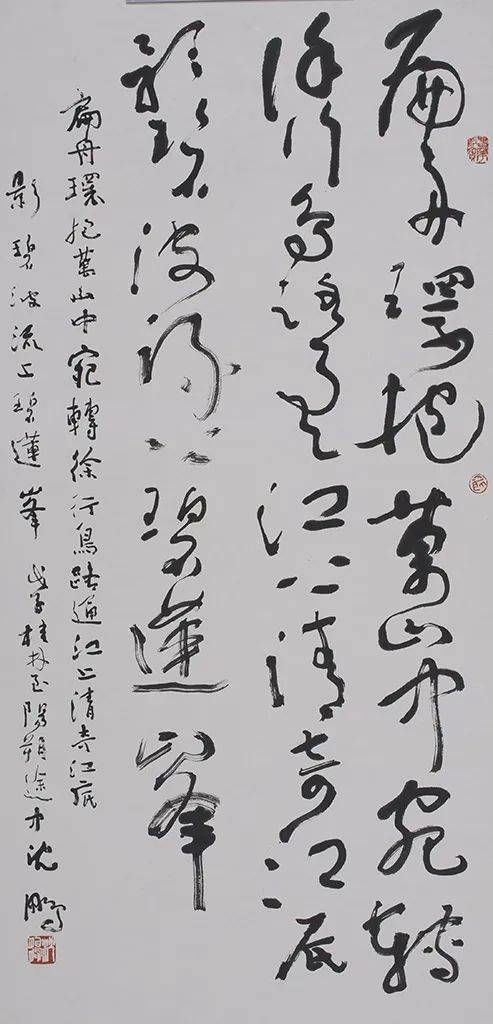 扁舟環抱萬山中宛轉
徐行鳥路通江上清奇江底
影碧波流上碧蓮峯
扁舟環抱萬山中宛轉徐行鳥路通江上清奇江底
影碧波流上碧蓮峯 戊子桂林至陽朔途中沈鵬